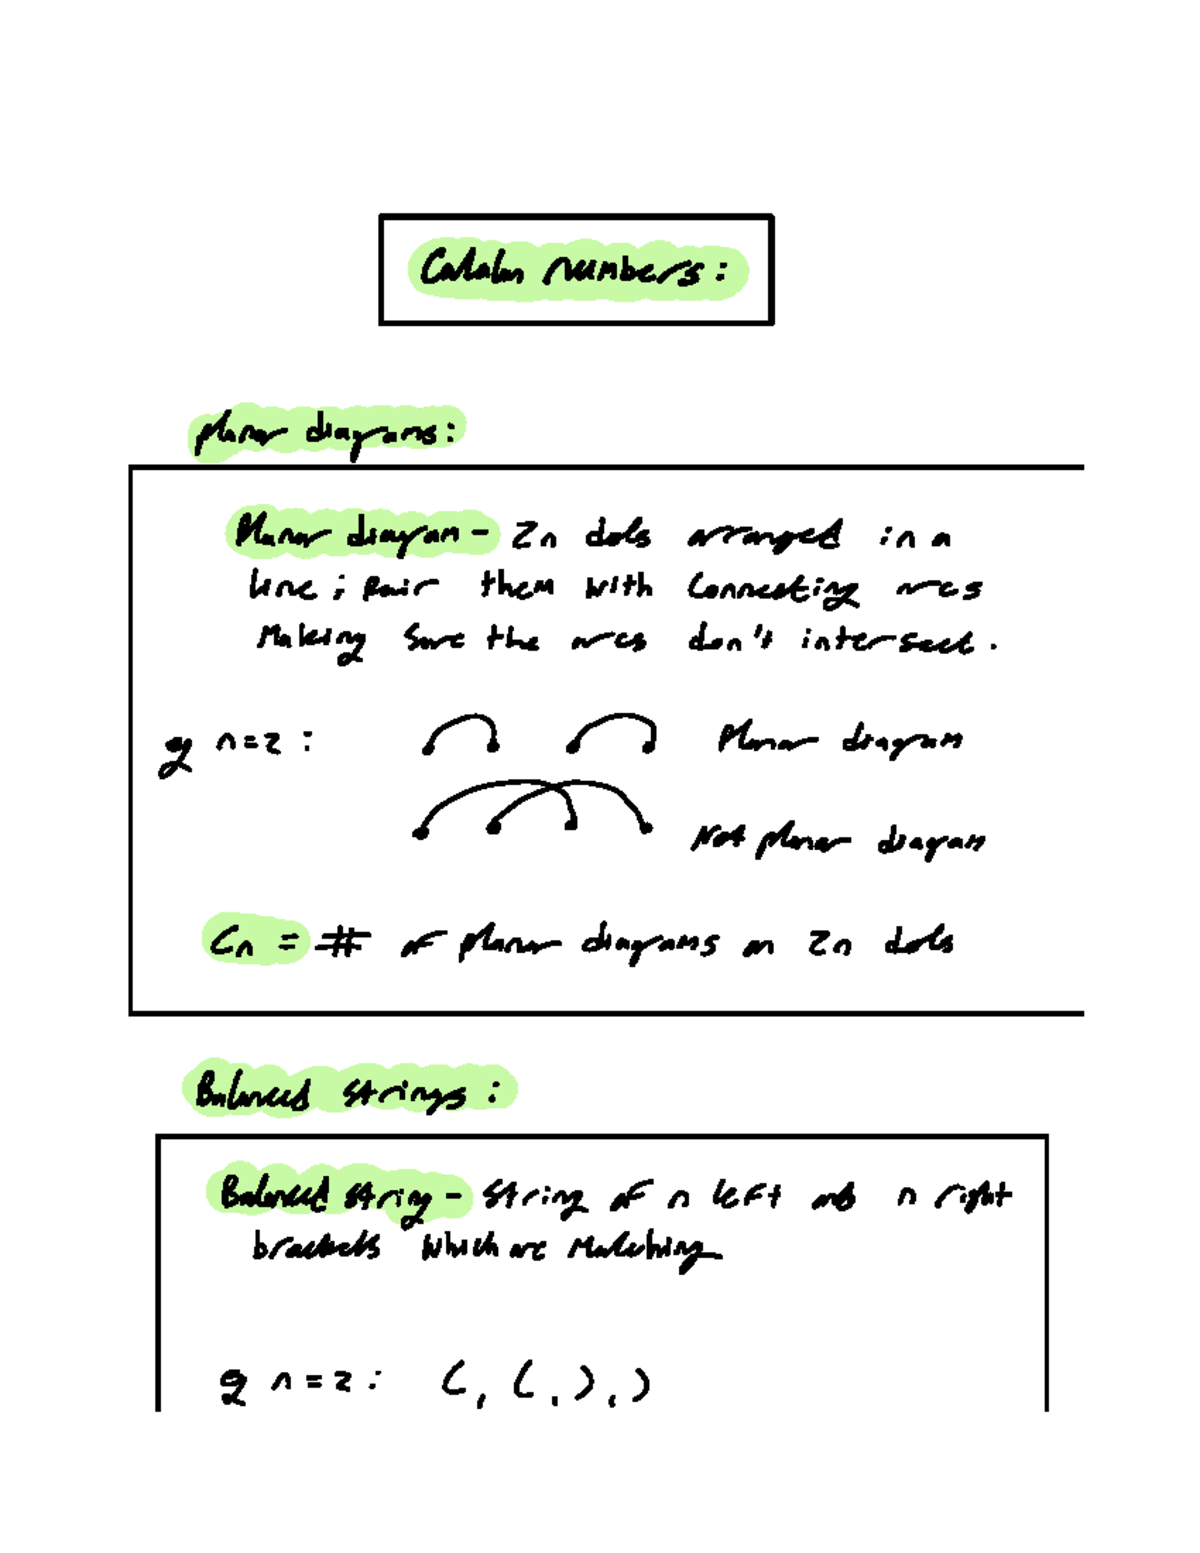 Catalan numbers:
Planar diagrams:
Planar diagram - 2n dots arranged in a
line; Pair them with connecting arcs
Making sure the arcs don't intersect.
eg n=2: Planar diagram
Not planar diagram
Cn = # of planar diagrams on 2n dots
Balanced strings:
Balanced string - string of n left and n right
brackets which are matching
eg n=2: (, (, ), )